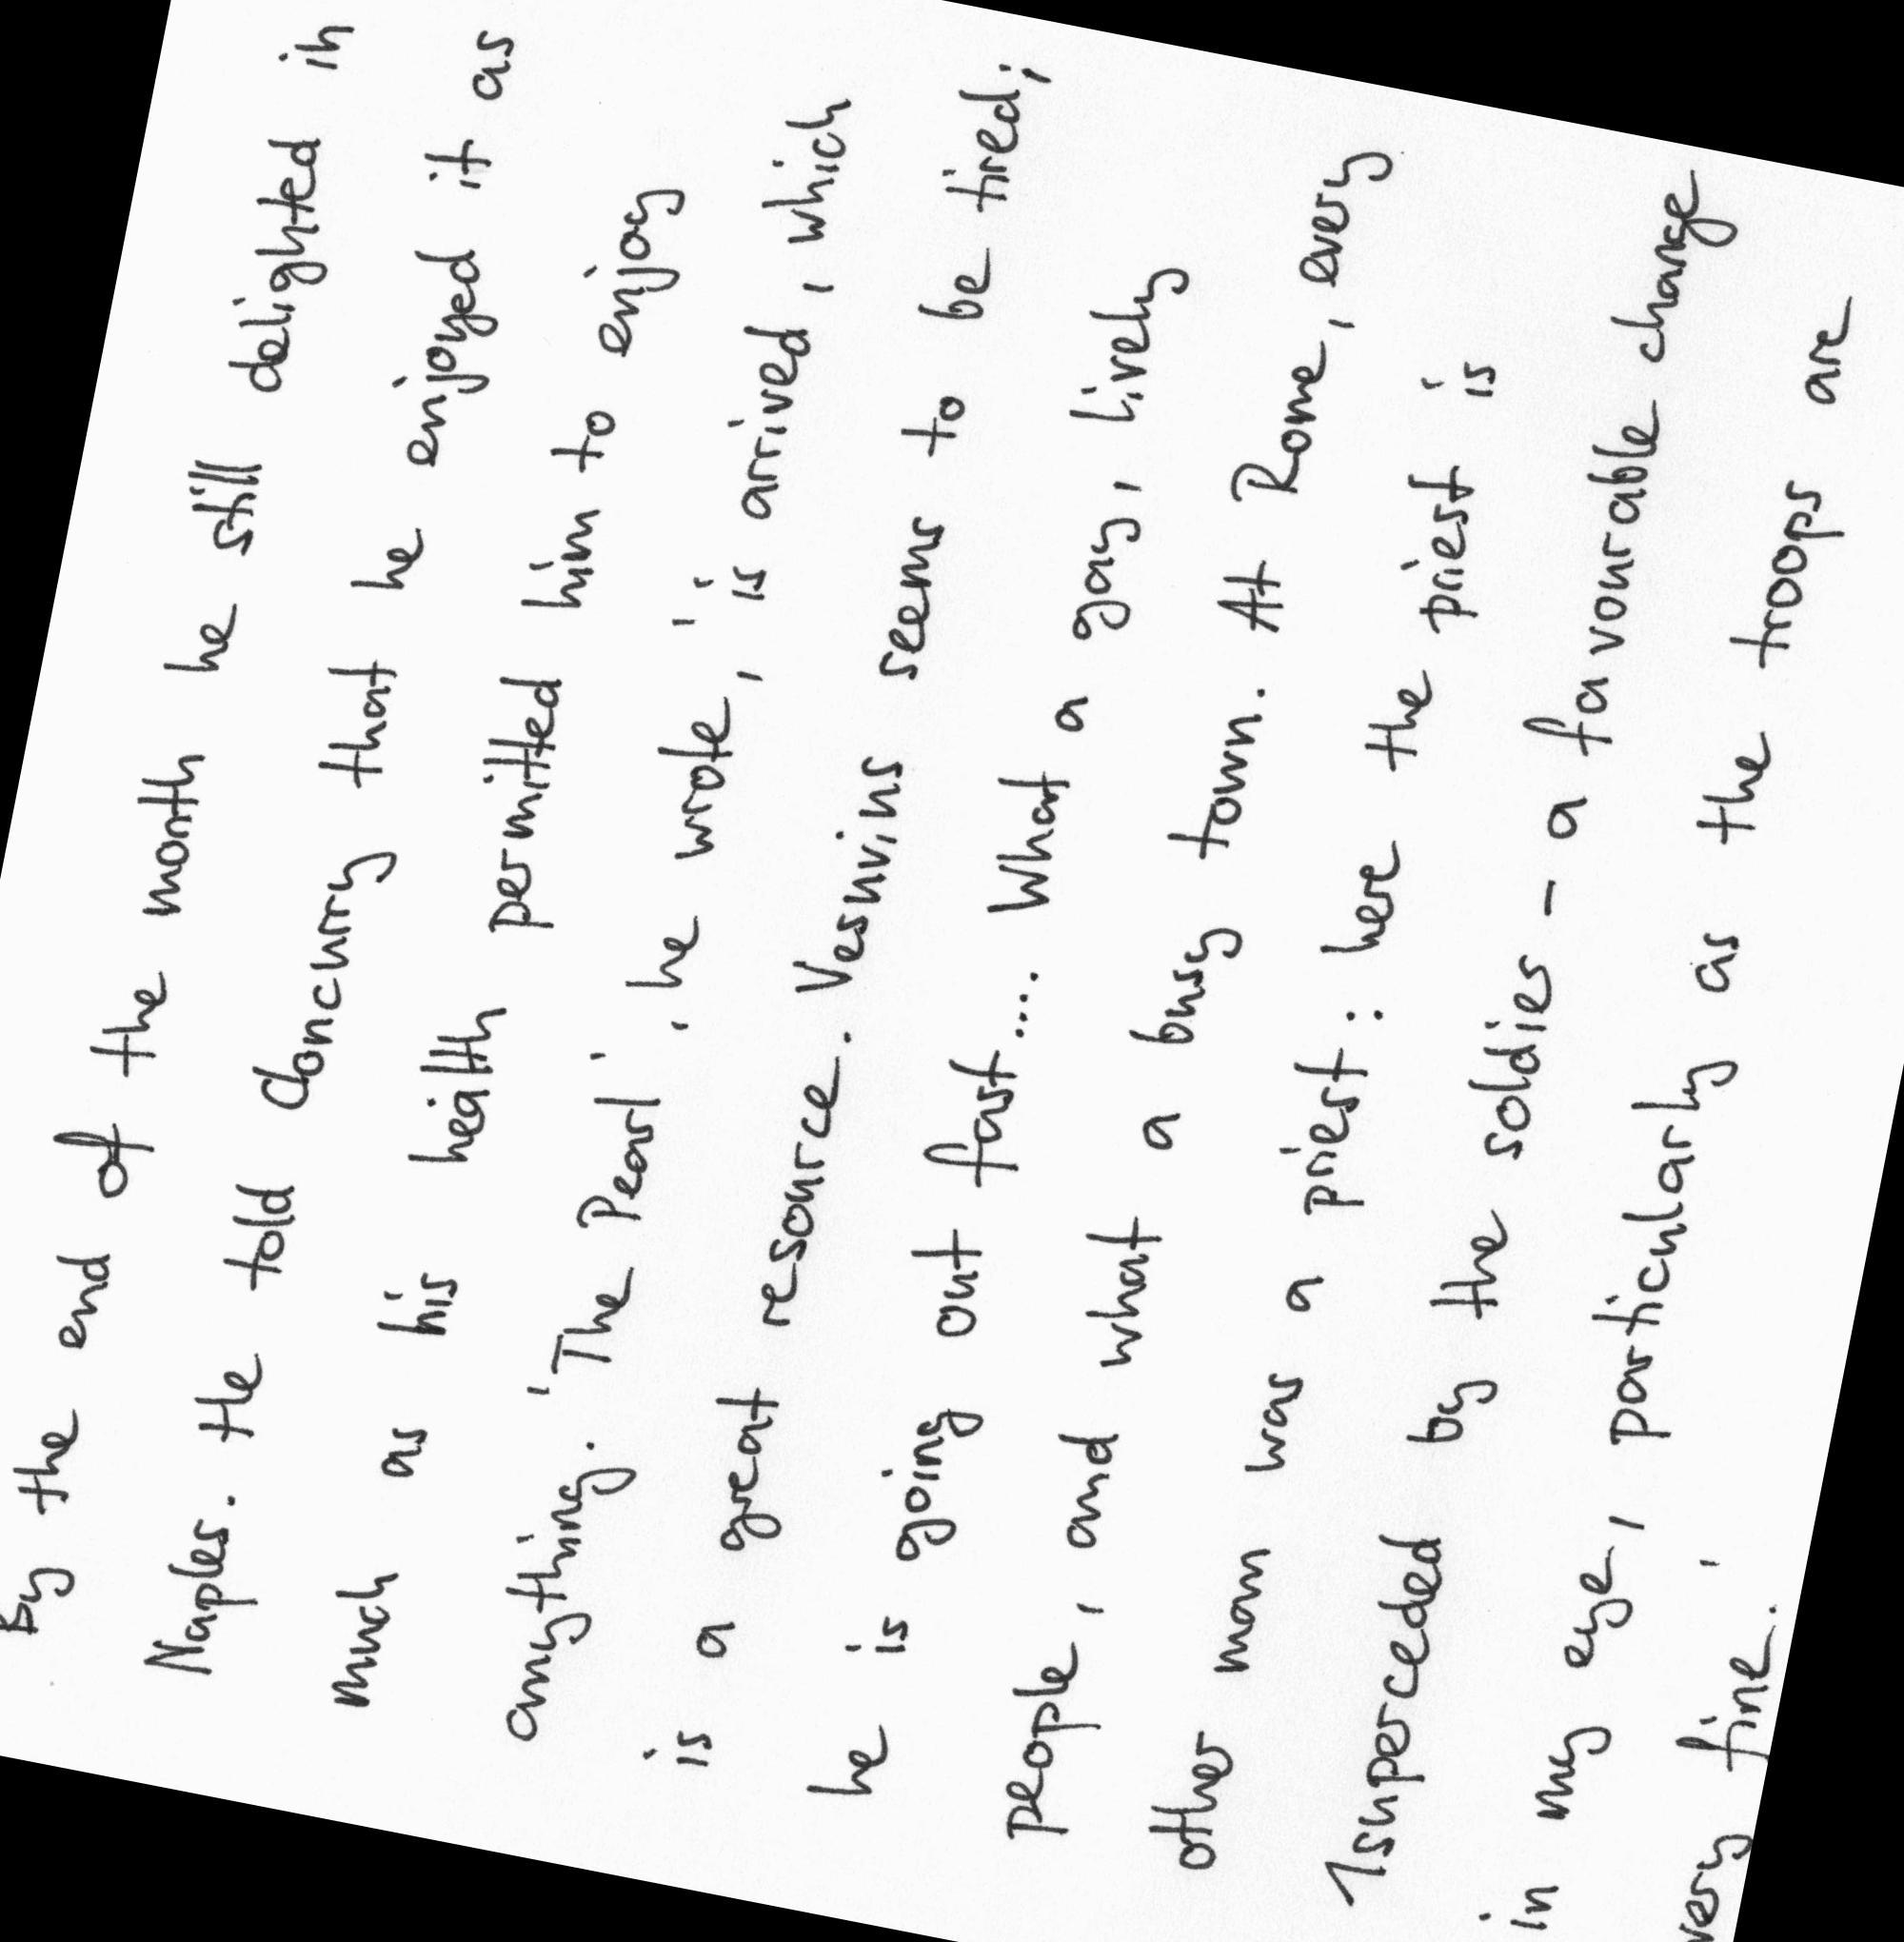 By the end of the month he still delighted in
Naples. He told Cloncurry that he enjoyed it as
much as his health permitted him to enjoy
anything. 'The Pearl', he wrote, 'is arrived, which
is a great resource. Vesuvius seems to be tired;
he is going out fast.... What a gay, lively
people, and what a busy town. At Rome, every
other man was a priest: here the priest is
superceded by the soldies - a favourable change
in my eye, particularly as the troops are
very fine.'